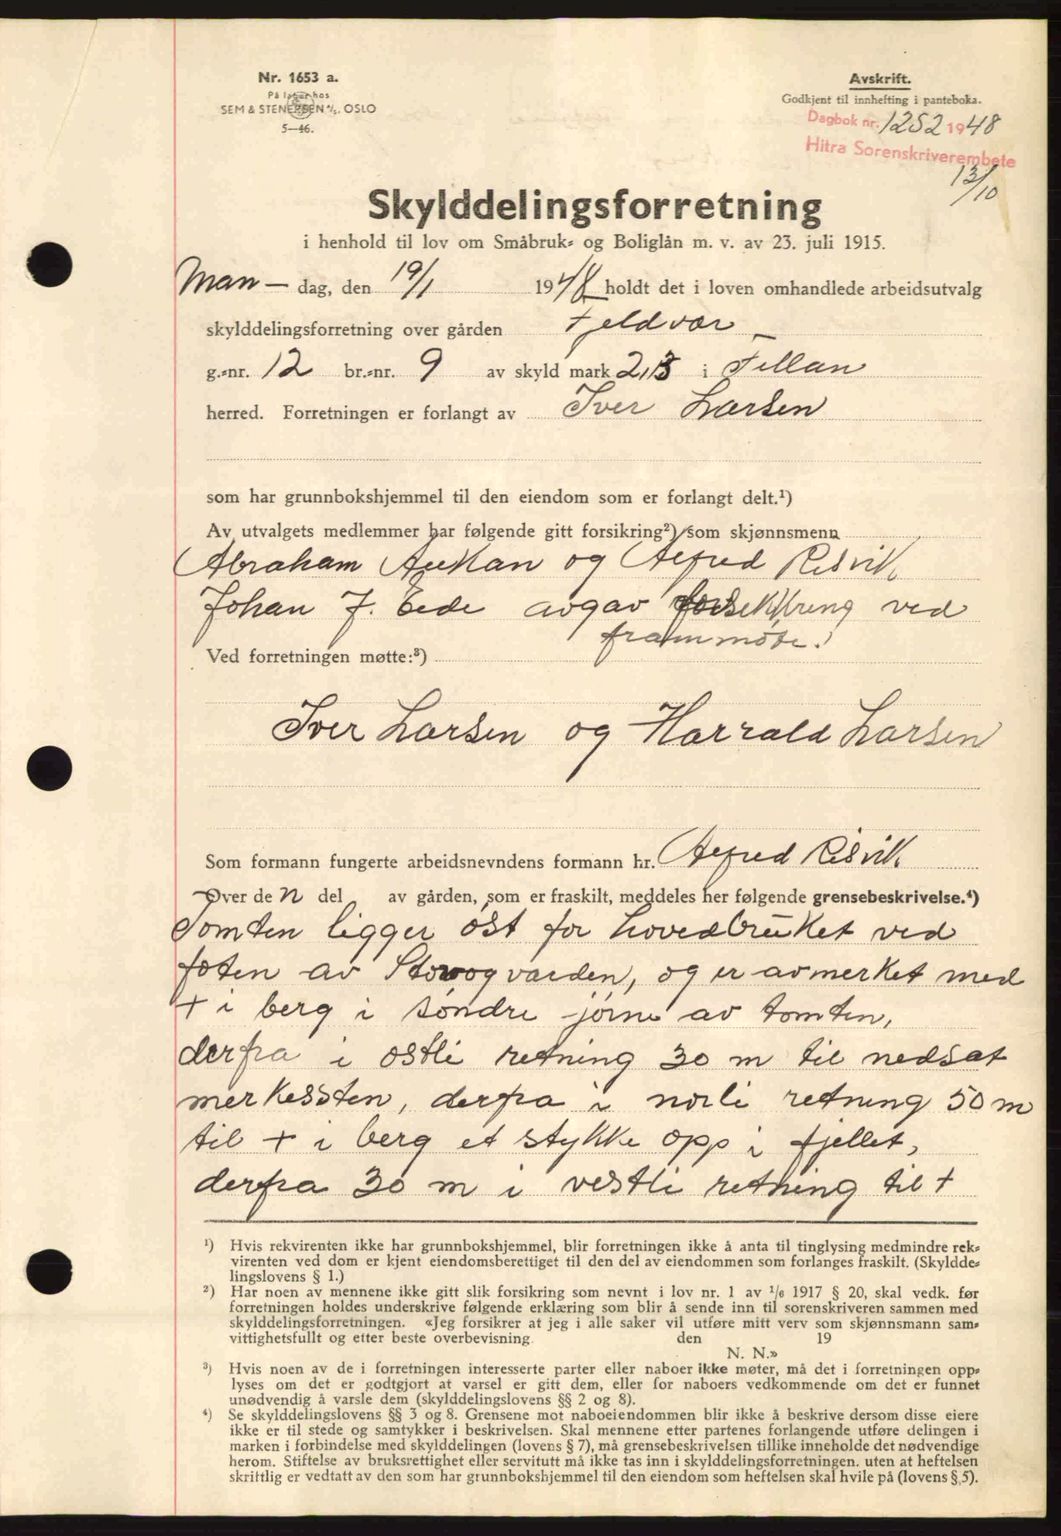 Nr. 1653 a.
På lager hos
SEM & STENERSEN A/S. OSLO
5—46.
Avskrift.
Godkjent til innhefting i panteboka.
Dagbok nr. 1252 1948
Hitra Sorenskriverembete
13/10
Skylddelingsforretning
i henhold til lov om Småbruk- og Boliglån m. v. av 23. juli 1915.
Man— dag, den 19/1 1948 holdt det i loven omhandlede arbeidsutvalg
skylddelingsforretning over gården Fjeldvær
g.-nr. 12 br.-nr. 9 av skyld mark 2,13 i Fillan
herred. Forretningen er forlangt av Iver Larsen
som har grunnbokshjemmel til den eiendom som er forlangt delt.¹)
Av utvalgets medlemmer har følgende gitt forsikring²) som skjønnsmenn
Abraham Aukan og Alfred Risvik
Johan J. Eede avgav forsekkring ved
frammøte!
Ved forretningen møtte:³)
Iver Larsen og Harrald Larsen
Som formann fungerte arbeidsnevndens formann hr. Alfred Risvik
Over de n del av gården, som er fraskilt, meddeles her følgende grensebeskrivelse.⁴)
Tomten ligger øst for hovedbruket ved
foten av Storvogvarden, og er avmerket med
+ i berg i søndre jørne av tomten,
derfra i østli retning 30 m til nedsat
merkessten, derfra i norli retning 50 m
til + i berg et stykke opp i fjellet,
derfra 30 m i vestli retning til +
¹) Hvis rekvirenten ikke har grunnbokshjemmel, blir forretningen ikke å anta til tinglysing medmindre rek-
virenten ved dom er kjent eiendomsberettiget til den del av eiendommen som forlanges fraskilt. (Skyldde-
lingslovens § 1.)
²) Har noen av mennene ikke gitt slik forsikring som nevnt i lov nr. 1 av 1/6 1917 § 20, skal vedk. før
forretningen holdes underskrive følgende erklæring som blir å sende inn til sorenskriveren sammen med
skylddelingsforretningen. «Jeg forsikrer at jeg i alle saker vil utføre mitt verv som skjønnsmann sam-
vittighetsfullt og etter beste overbevisning. den 19
N. N.»
³) Hvis noen av de i forretningen interesserte parter eller naboer ikke møter, må det i forretningen opp-
lyses om det er godtgjort at varsel er gitt dem, eller for naboers vedkommende om det er funnet
unødvendig å varsle dem (skylddelingslovens §§ 2 og 8).
⁴) Se skylddelingslovens §§ 3 og 8. Grensene mot naboeiendommen blir ikke å beskrive dersom disse eiere
ikke er til stede og samtykker i beskrivelsen. Skal mennene etter partenes forlangende utføre delingen i
marken i forbindelse med skylddelingen (lovens § 7), må grensebeskrivelsen tillike inneholde det nødvendige
herom. Stiftelse av bruksrettighet eller servitutt må ikke tas inn i skylddelingsforretningen. uten at heftelsen
skriftlig er vedtatt av den som har grunnbokshjemmel til den eiendom som heftelsen skal hvile på (lovens § 5).